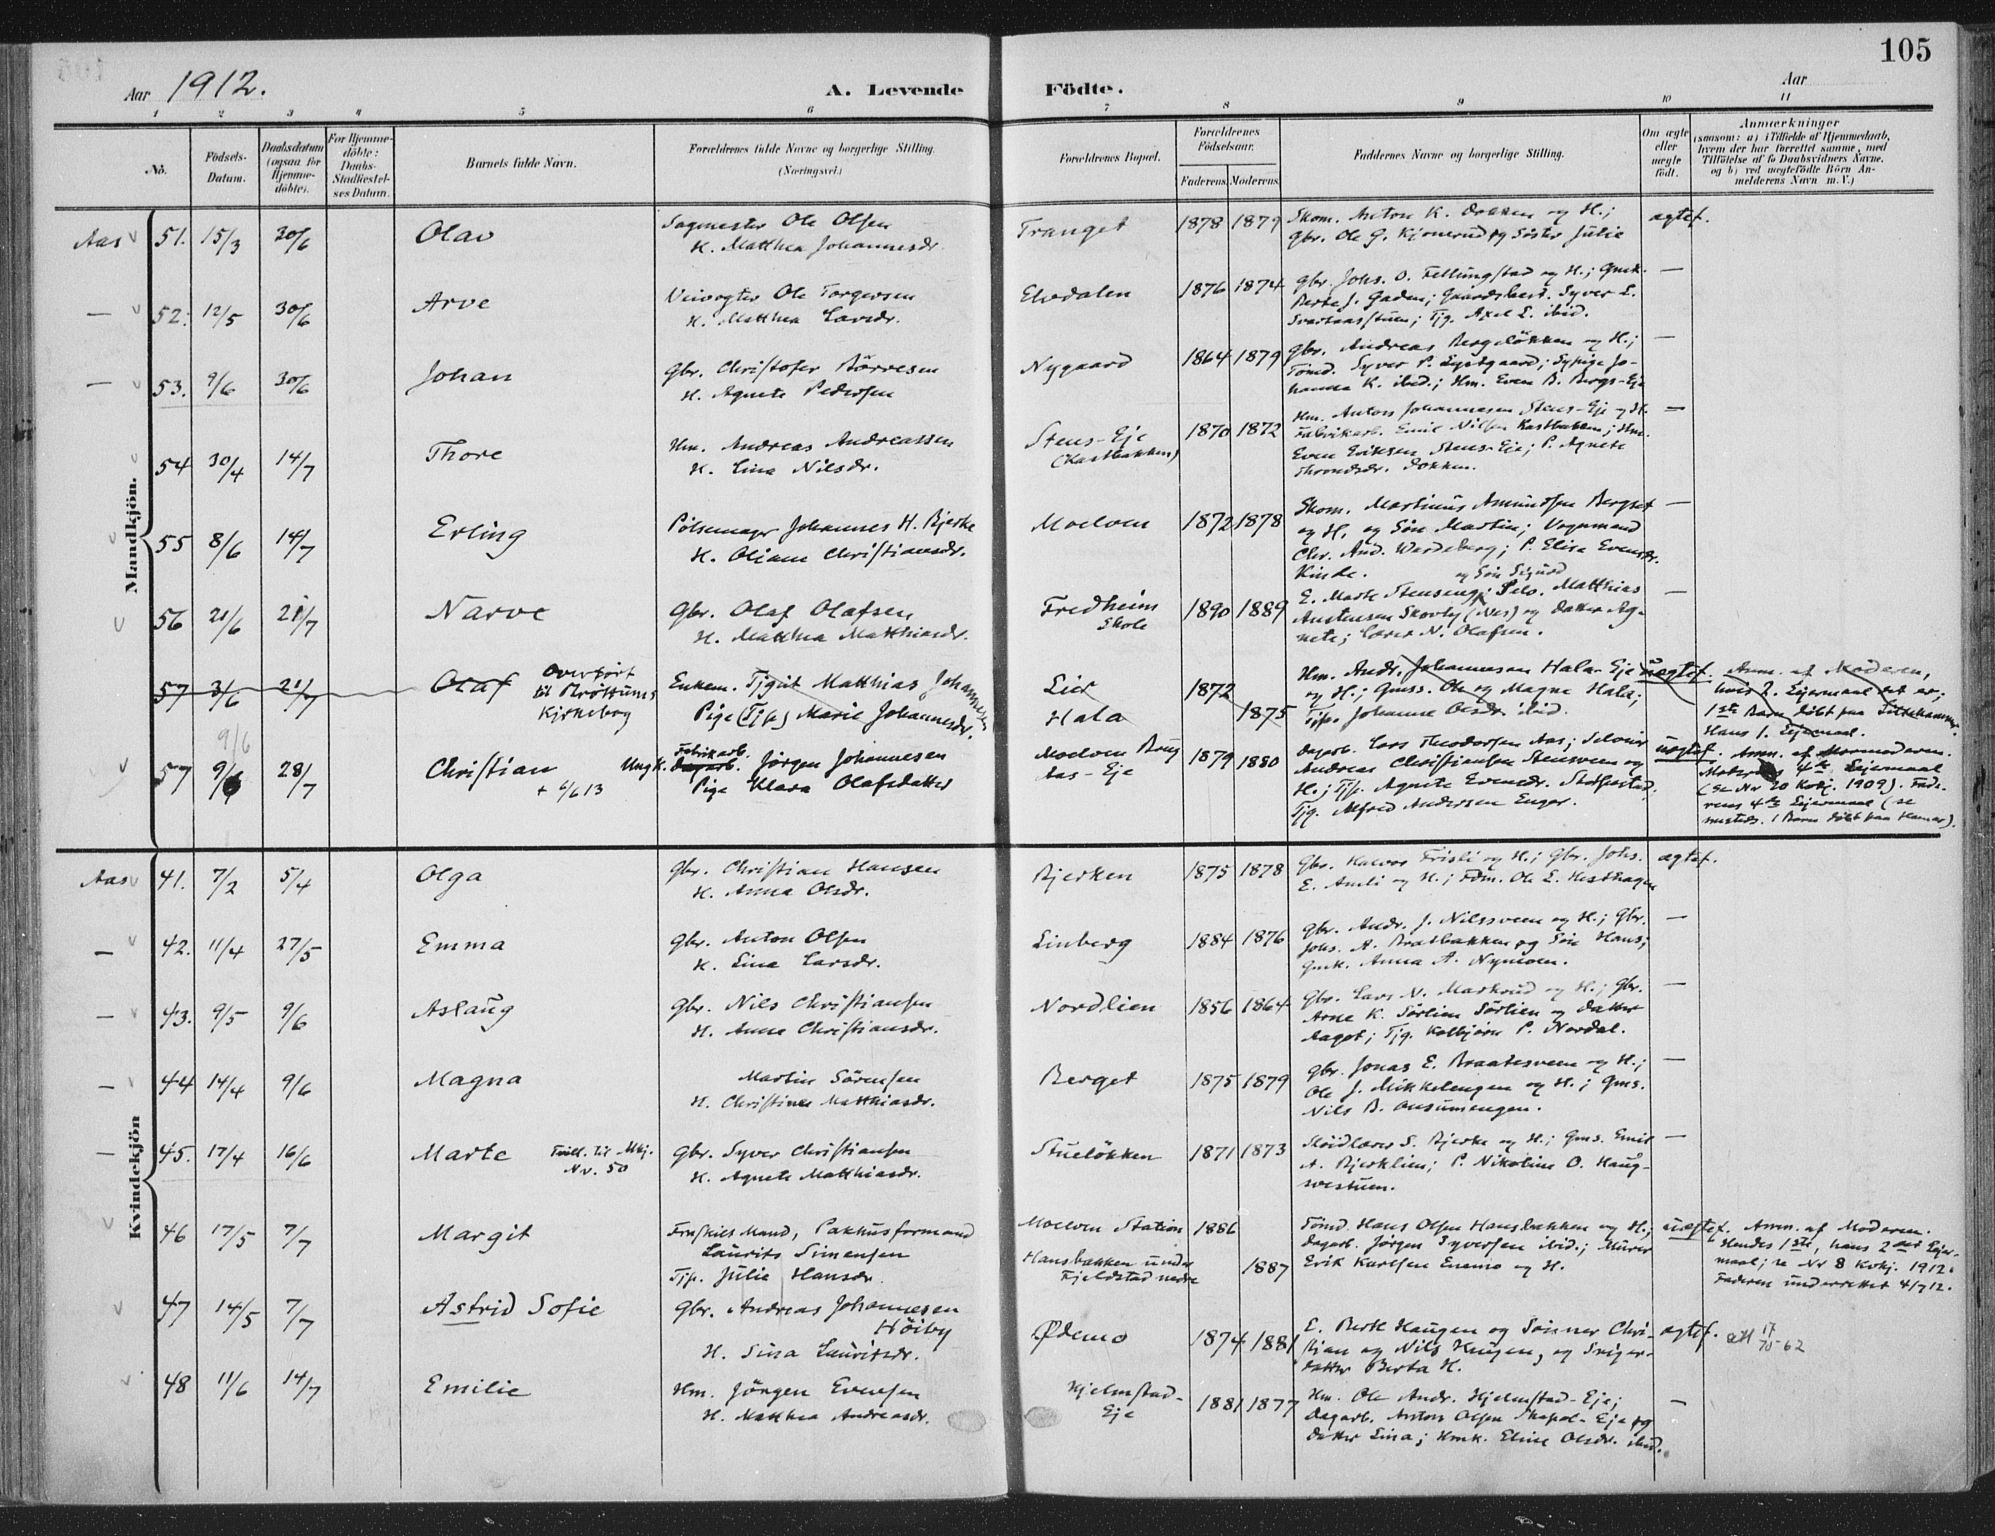 105
Aar 1912. A. Levende Födte. Aar
1 2 3 4 5 6 7 8 9 10 11
No. Födsels-Datum. Daabsdatum (ogsaa for Hjemme-döbte). For Hjemme-döbte: Daabs-Stadfæstel-ses Datum. Barnets fulde Navn. Forældrenes fulde Navne og borgerlige Stilling. (Næringsvei.) Forældrenes Bopæl. Forældrenes Födselsaar. Faderens. Moderens. Faddernes Navne og borgerlige Stilling. Om ægte eller uægte födt. Anmærkninger
(saasom: a) i Tilfælde af Hjemmedaab,
hvem der har forrettet samme, med
Tilföielse af to Daabsvidners Navne,
og b) ved uægtefödte Börn An-
melderens Navn m. V.)
Mandkjön.
Aas 51. 15/3 30/6 Olav Sagmester Ole Olsen Tranget 1878 1879 Skom. Anton K. Dokken og H.; ægtef.
H. Matthea Johannesdr. Gbr. Ole G. Kjonerud og Söster Julie
— 52. 12/5 30/6 Arve Veivogter Ole Torgersen Elvedalen 1876 1874 Gbr. Johs. O. Fellungstad og H.; Gmk. —
H. Matthea Larsdr. Berte J. Gaden; Gaardsbest. Syver L.
Svartaasstuen; Tjg. Axel L. ibid.
— 53. 9/6 30/6 Johan Gbr. Christofer Börresen Nygaard 1864 1879 Gbr. Andreas Bergelökken og H.; —
H. Agnete Pedersen Tömd. Syver P. Lystgaard; Sypige Jo-
hanna K. ibid.; Hm. Even B. Bergs-Eje
54 30/4 14/7 Thore Hm. Andreas Andreassen Stens-Eje 1870 1872 Hm. Anton Johannesen Stens-Eje og H. —
H. Lina Nilsdr. (Kastbakken) Fabrikarb. Emil Nilsen Kastbakken; Hm.
Even Eriksen Stens-Eje; P. Agnete
Throndsdr. Dokken.
55 8/6 14/7 Erling Pölsemager Johannes H. Bjerke Moelven 1872 1878 Skom. Martinus Amundsen Berget —
H. Oliane Christiansdr. og H. og Sön Martin; Vognmand
Chr. And. Wardeberg; P. Elise Evensdr.
Kinde.
og Sön Sigurd
56 21/6 21/7 Narve Gbr. Olaf Olafsen Fredheim Skole 1890 1889 E. Marte Stenseng; Selv. Matthias —
H. Matthea Matthiasdr. Austensen Skovly (Nes) og Datter Ag-
nete; Lærer N. Olafsen.
57 3/6 21/7 Olaf Overfört til Bröttums Kirkebog Enkem. Tjgut Matthias Johannesen Lier 1872 Hm. Andr. Johannesen Hala-Eje uægtef. Anm. af Moderen,
Pige (Tjp.) Marie Johannesdr. Hala 1875 og H.; Gmss. Ole og Magne Hala; hvis 2. Leiermaal det er;
Tjp. Johanne Olsdr. ibid. 1ste Barn döbt paa Lillehammer.
Hans 1. Leiermaal.
9/6
57 9/6 28/7 Christian Ungk. Fabrikarb. Dagarb. Jörgen Johannesen Moelven Brug 1879 1880 Dagarb. Lars Theodorsen Aas; Selveier uægtef. Anm. af Mormoderen.
+ 6/6 13 Pige Klara Olafsdatter Aas-Eje Andreas Christiansen Stensveen og Moderens 4de Leiermaal
H.; Tjp. Agnete Evensdr. Stafsstad; (se Nr 20 Kvkj. 1909). Fade-
Tjg. Alfred Andersen Enger. rens 4de Leiermaal (se
sammesteds. 1 Barn döbt paa Hamar).
Kvindekjön
Aas 41. 7/2 5/4 Olga Gbr. Christian Hansen Bjerken 1875 1878 Gbr. Halvor Frisli og H.; Gbr. Johs. ægtef.
H. Anna Olsdr. E. Amli og H.; Fdm. Ole L. Hesthagen
— 42. 11/4 27/5 Emma Gbr. Anton Olsen Linberg 1884 1876 Gbr. Andr. J. Nilssveen og H.; Gbr. —
H. Lina Larsdr. Johs. A. Bratbakken og Sön Hans;
Gmk. Anna A. Nymoen.
— 43. 9/5 9/6 Aslaug Gbr. Nils Christiansen Nordlien 1856 1864 Gbr. Lars N. Maskrud og H.; Gbr. —
H. Anne Christiansdr. Arne K. Sörlien Sörlien og Datter
Dagot; Tjg. Kolbjörn P. Nordal.
— 44 14/4 9/6 Magna Martin Sörensen Berget 1875 1879 Gbr. Jonas E. Braatesveen og H.; —
H. Christine Matthiasdr. Ole J. Mikkelengen og H.; Gms.
Nils B. Onsumengen.
— 45. 17/4 16/6 Marte Tvill. til Mkj. Nr. 50 Gbr. Syver Christiansen Stuelökken 1871 1873 Slöidlærer S. Bjerke og H.; Gms. Emil —
H. Agnete Matthiasdr. A. Bjerklien; P. Nikoline O. Haug-
svestuen.
46 17/5 7/7 Margit Fraskilt Mand, Pakhusformand Laurits Simensen Moelven Station 1886 Tömd. Hans Olsen Hansbakken og H.; uægtef. Anm. af Moderen.
Tjp. Julie Hansdr. Hansbakken under Fjeldstad nedre 1887 Dagarb. Jörgen Syversen ibid.; Murer Hendes 1ste, hans 2det Leier-
Erik Karlsen Enemo og H. maal; se Nr 8 Kvkj. 1912.
Faderen underrettet 4/7 12.
47 14/5 7/7 Astrid Sofie Gbr. Andreas Johannesen Höiby Ødemo 1874 1881 E. Berte Haugen og Sönner Chri- ægtef. att 17/70-62
H. Sina Lauritsdr. stian og Nils Haugen, og Sviger-
datter Berta H.
48 11/6 14/7 Emilie Hm. Jörgen Evensen Hjelmstad-Eje 1881 1877 Hm. Ole Andr. Hjelmstad-Eje; —
H. Matthea Andreasdr. Dagarb. Anton Olsen Skapal-Eje og
Datter Lina; Hmk. Eline Olsdr. ibid.